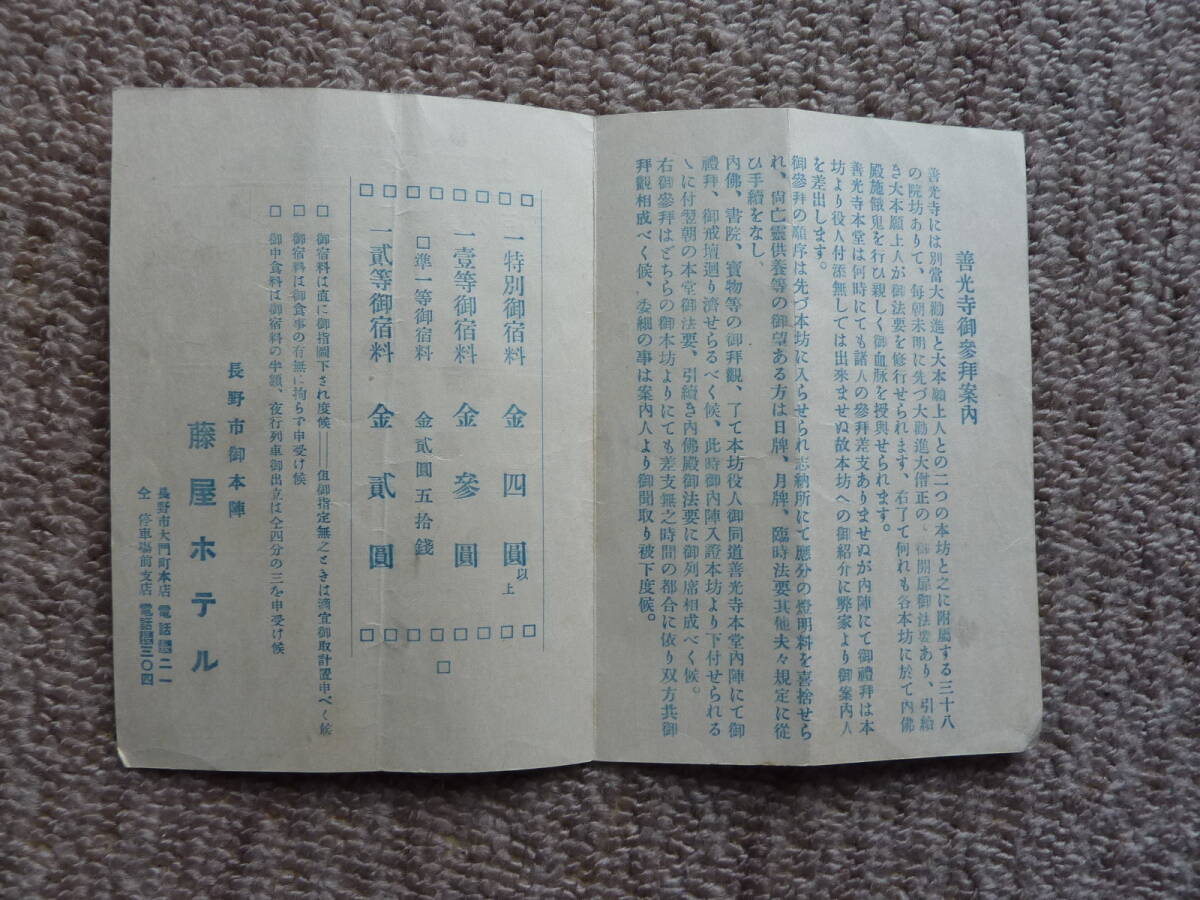 善光寺御參拜案內
善光寺には別當大勸進と大本願上人との二つの本坊と之に附屬する三十八
の院坊ありて、每朝未明に先づ大勸進大僧正の、御開扉御法要あり、引續
き大本願上人が御法要を修行せられます、右了て何れも各本坊に於て內佛
殿施餓鬼を行ひ親しく御血脉を授與せられます。
善光寺本堂は何時にても諸人の參拜差支ありませぬが內陣にて御禮拜は本
坊より役人付添無しては出來ませぬ故本坊への御紹介に弊家より御案內人
を差出します。
御參拜の順序は先づ本坊に入らせられ志納所にて應分の燈明料を喜捨せら
れ、尙亡靈供養等の御望ある方は日牌、月牌、臨時法要其他夫々規定に從
ひ手續をなし、
內佛、書院、寶物等の御拜觀、了て本坊役人御同道善光寺本堂內陣にて御
禮拜、御戒壇迴り濟せらるべく候、此時御內陣入證本坊より下付せられる
ゝに付翌朝の本堂御法要、引續き內佛殿御法要に御列席相成べく候。
右御參拜はどちらの御本坊よりにても差支無之時間の都合に依り双方共御
拜觀相成べく候、委細の事は案內人より御聞取り被下度候。
一特別御宿料 金四圓以上
一壹等御宿料 金參圓
□準一等御宿料 金貳圓五拾錢
一貳等御宿料 金貳圓
□ 御宿料は直に御指圖下され度候——但御指定無之ときは適宜御取計置申べく候
□ 御宿料は御食事の有無に拘らず申受け候
□ 御中食料は御宿料の半額、夜行列車御出立は仝四分の三を申受け候
長野市御本陣
藤屋ホテル
長野市大門町本店 電話長二一
仝 停車場前支店 電話長三〇四